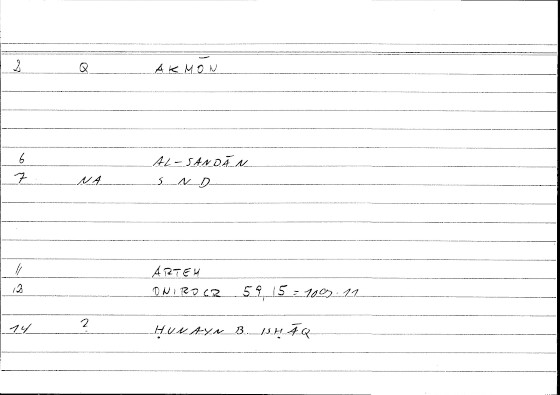 2 Q AKMŌN
6 AL-SANDĀN
7 NA S N D
11 ARTEM
12 ONIROCR 59,15 = 109.11
14 ? ḤUNAYN B. ISḤĀQ